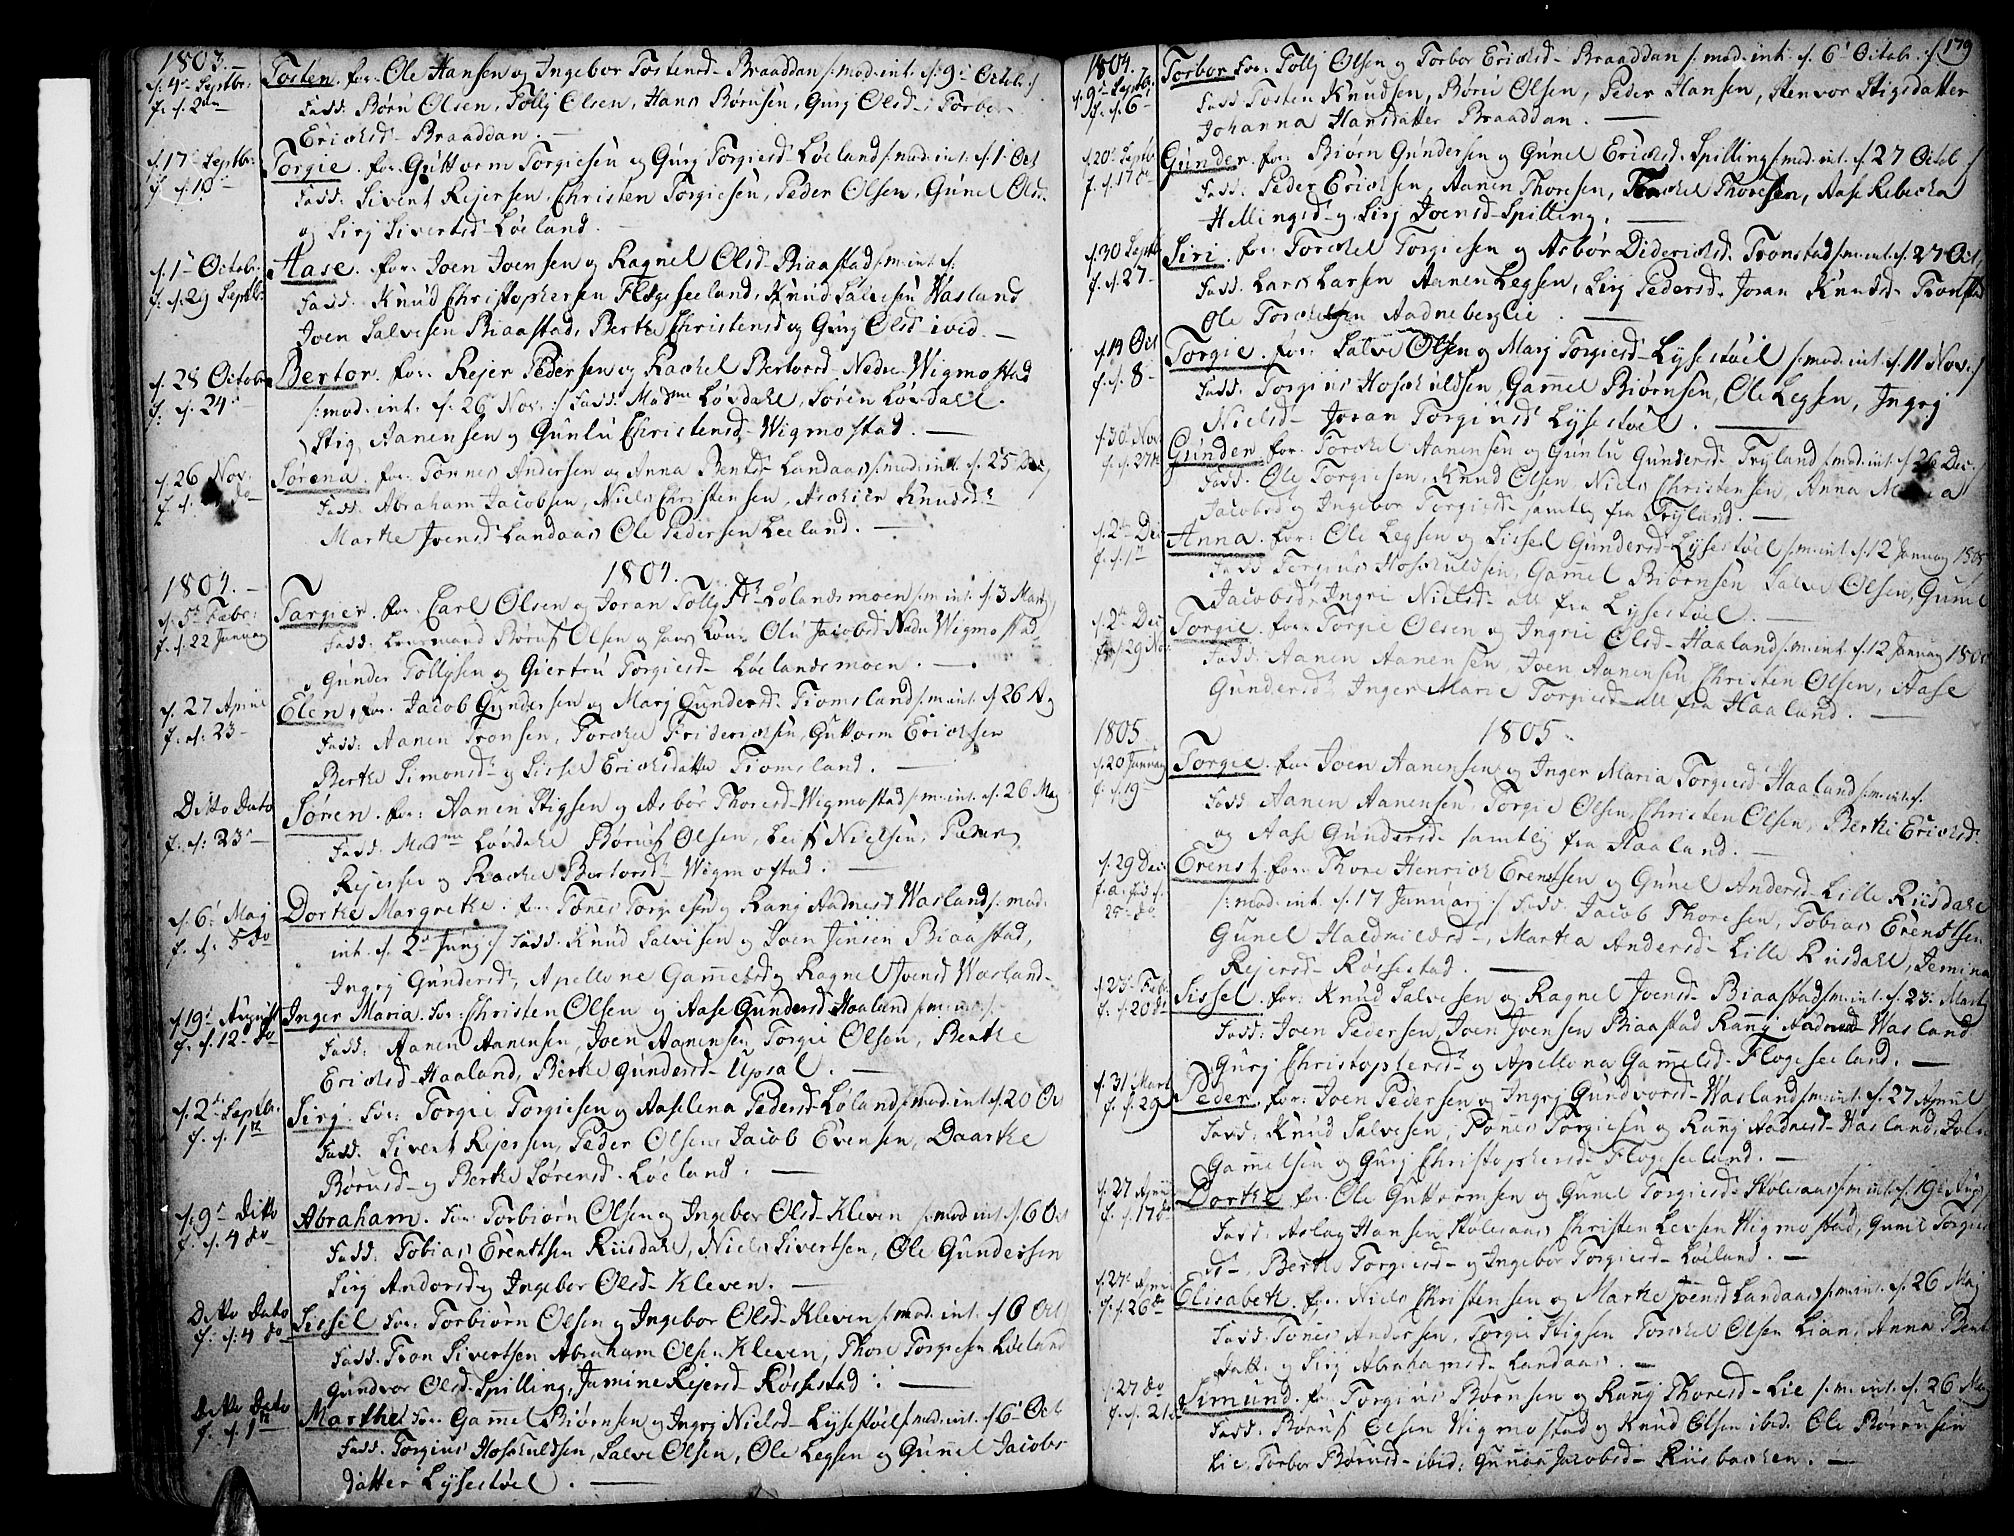 1803.
d. 4de Septbr: Tosten. for. Ole Hansen og Ingebor Tostensd. Braaddan /: mod. int. d. 9de Octobr :/
f. d. 2den Fadd: Børu Olsen, Tollj Olsen, Hans Børusen, Gurj Olsd. Torbor
Ericksd. Braaddan.
d. 17de Septbr: Torgie. for. Guttorm Torgiesen og Gurj Torgiesd. Løeland /: mod. int. d. 1. Oct
f. d. 10de Fadd: Sivert Rejersen, Christen Torgiesen, Peder Olsen, Gunel Olsd.
og Sirj Sivertsd. Løeland.
d. 1ste Octob: Aase. for. Joen Joensen og Ragnel Olsd. Biaastad /: m: int. d.
f. d. 29 Septb: Fadd: Knud Christophersen Flogeseeland, Knud Salvesen Wasland
Joen Salvesen Biaastad, Berthe Christensd. og Gurj Olsd. ibid.
d. 28 Octob: Bertor. for. Rejer Pedersen og Rachel Bertorsd. Nedre Wigmostad
f. d. 24de /: mod. int. d. 26 Nov. :/ Fadd: Madme Løvdahl, Søren Løvdahl.
Stig Aanensen og Gunlu Christensd. Wigmostad.
d. 26 Nov. Sørena. for. Tønnes Andersen og Anna Bentsd. Landaas /: mod. int. d. 25 Dec.
f. d. do Fadd: Abraham Jacobsen, Niels Christensen, Knudsd.
Marthe Joensd. Landaas Ole Pedersen Løeland.
1804. 1804.
d. 5te Febr: Targier. for. Carl Olsen og Joran Tolljsd. Løelandsmoen /: m. int. d. 3 Martj
f. d. 22 Januarj Fadd: Lensmand Børuf Olsen og hans Kone Olu Jacobsd. Nedre Wigmostad
Gunder Tolljsen og Giertru Torgiesd. Løelandsmoen.
d. 27 April Elen. for. Jacob Gundersen og Marj Gundersd. Tiomsland /: m. int. d. 26
f. d. 23 Fadd: Aanen Tronsen, Torchel Friderichsen, Guttorm Ericksen
Berthe Simonsd. og Sissel Ericksdatter Tiomsland.
Ditto Dato Søren. for. Aanen Stigsen og Asbør Thoresd. Wigmostad /: m: int. d. 26 Maj
f. d. 23 Fadd: Madme Løvdahl Børuf Olsen, Leif Nielsen,
Rejersen og Rachel Bertorsd. Wigmostad.
d. 6te Maj Dorthe Margrethe. for. Tønes Torgiesen og Ranj Aadnesd. Wasland /: mod.
f. d. 5 do int. d. 2den Junj :/ Fadd: Knud Salvesen og Joen Jensen Biaastad,
Ingrj Gundersd. Apellone Gamelsd. og Ragnel Joensd. Wasland
d. 19de August Inger Maria. for. Christen Olsen og Aase Gundersd. Haaland /: m: int.
f. d. 12 do Fadd: Aanen Aanensen, Joen Aanensen, Torgie Olsen, Berthe
Ericksd. Haaland, Berthe Gundersd. Upsal.
d. 2den Septbr: Sirj. for. Torgie Torgiesen og Aaselena Pedersd. Løland /: mod. int. d. 20 Oc
f. d. 1ste Fadd: Sivert Rejersen, Peder Olsen, Jacob Evensen, Daarthe
Børusd. og Berthe Sørensd. Løeland.
d. 9de Ditto Abraham. for. Torbiørn Olsen og Ingebor Olsd. Kleven /: mod. int. d. 6 Oct
f. d. 4 do Fadd: Tobias Erentsen Riisdahl, Niels Sivertsen, Ole Gundersen
Sirj Andersd. og Ingebor Olsd. Kleven.
Ditto Dato Sissel. for. Torbiørn Olsen og Ingebor Olsd. Kleven /: mod. int. d. 6 Oct
f. d. 4 do Fadd: Tron Sivertsen Abraham Olsen Kleven, Thore Torgiesen Løeland
Gundvor Olsd. Spilling, Jamine Rejersd. Røssestad.
Ditto Dato Marthe. for. Gamel Biørnsen og Ingrj Nielsd. Lyssestøel /: mod. int. d. 6te Oct
f. d. 1ste Fadd: Torgius Hoskuldsen, Salve Olsen, Ole Legsen og Gunnel Jacobs
datter Lyssestøel.
179
1804.
d. 9de Septb: Torbor. for. Tollj Olsen og Torbor Ericksd. Braaddan /: mod. int. d. 6te Octob. :/
f. d. 6te Fadd: Tosten Knudsen, Børu Olsen, Peder Hansen, Stenvor Stigsdatter
Johanna Hansdatter Braaddan.
d. 20de Septb Gunder. for. Biørn Gundersen og Gunel Ericksd. Spilling /: mod. int. d. 27 Octob :/
f. d. 17 do Fadd: Peder Ericksen, Aanen Thoresen, Torchel Thoresen, Aase Rebecka
Hellingsd. og Sirj Joensd. Spilling.
d. 30 Septb Siri. for. Torchel Torgiesen og Asbør Didericksd. Tronstad /: m: int. d. 27 Oct
f. d. 27 Fadd: Lars Larsen Aanen Legsen, Sirj Pedersd. Joran Knudsd. Tronstad
Ole Torchelsen Aadneberglie.
d. 14 Oct Torgie. for. Salve Olsen og Marj Torgiesd. Lyssestøel /: mod. int. d. 11 Nov. :/
f. d. 8 Fadd: Torgius Hoskuldsen, Gamel Biørnsen, Ole Legsen, Ingrj
Nielsd. Joran Torgiusd. Lyssestøel.
d. 30 Nov Gunder. for. Torchel Aanensen og Gunlu Gundersd. Tryland /: mod. int. d. 26 Dec. :/
f. d. 27de Fadd: Ole Torgiesen, Knud Olsen, Niels Christensen, Anna Maria
Jacobsd. og Ingebor Torgiesd. samtlig fra Tryland.
d. 2den Dec Anna. for. Ole Legsen og Sissel Gundersd. Lyssestøel /: m: int. d. 12 Januarj 1805
f. d. 1ste Fadd Torgius Hoskuldsen, Gamel Biørnsen Salve Olsen, Gunel
Jacobsd. Ingri Nielsd. all fra Lyssestøel.
d. 2den Dec Torgie. for. Torgie Olsen og Ingrie Olsd. Haaland /: m: int. d. 12 Januarj 1805
f. d. 29 Nov: Fadd: Aanen Aanensen, Joen Aanensen, Christen Olsen, Aase
Gundersd. Inger Marie Torgiesd. all fra Haaland.
1805 1805.
d. 20 Januarj Torgie. for. Joen Aanensen og Inger Maria Torgiesd. Haaland /: m: int. d.
f. d. 19de Fadd Aanen Aanensen, Torgie Olsen, Christen Olsen, Berthe Ericksd.
og Aase Gundersd. samtlig fra Haaland.
d. 29 Dec: Erenst. for. Thore Henrich Erentsen og Gunel Andersd. Lille Riisdahl
25de do /: mod. int. d. 17 Januarj :/ Fadd: Jacob Thoresen, Tobias Erentsen
Gunel Haldmildsd. Martha Andersd. Lille Riisdahl, Jemina
Rejersd. Røssestad.
d. 23de Feb: Sissel. for. Knud Salvesen og Ragnel Joensd. Biaastad /: m: int. d. 23de Martj
f. d. 20 do Fadd: Joen Pedersen, Joen Joensen Biaastad Ranj Aadnesd. Wasland
Gurj Christophersd. og Apellona Gamelsd. Flogeseeland.
d. 31 Mart Peder. for. Joen Pedersen og Ingrj Gundvorsd. Wasland /: m: int. d. 27 April
f. d. 29 Fadd: Knud Salvesen, Tønes Torgiesen og Ranj Aadnesd. Wasland,
Gamelsen og Gurj Christophersd. Flogeseeland.
d. 27 April Dorthe. for. Ole Guttormsen og Gunel Torgiesd. Stolesaas /: m: int. d. 19de
f. d. 17 do Fadd: Aslag Hansen Stolesaas Christen Levsen Wigmostad, Gunil Torgies
d. Berthe Torgiesd. og Ingebor Torgiesd. Løeland.
d. 27de April Elisabeth. for. Niels Christensen og Marthe Joensd. Landaas /: m: int. d. 26 Maj
f. d. 26 do Fadd: Tønes Andersen, Torgie Stigsen Torchel Olsen Lian, Anna Bent
datt. og Sirj Abrahamsd. Landaas.
d. 27 do Simund. for. Torgius Børusen og Ranj Thoresd. Lie /: m: int. d. 26 Maj
f. d. 21de Fadd: Børuf Olsen Wigmostad og Knud Olsen ibid. Ole Børusen
Lie, Torbor Børusd. ibid: Gunna Jacobsd. Riisbachen.